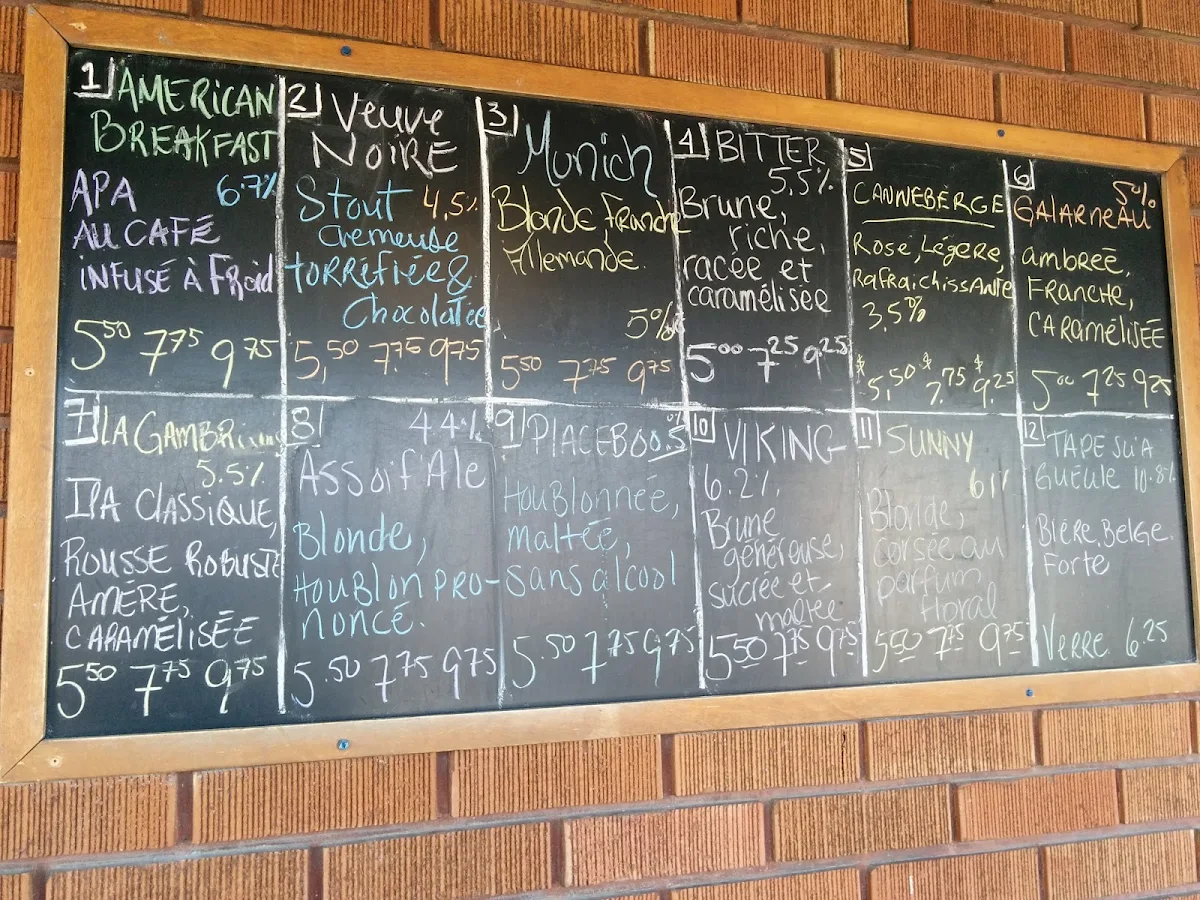 1 AMERICAN
BREAKFAST
APA 6.7%
AU CAFÉ
INFUSÉ À FROID
5 50 7 75 9 75
2 Veuve
NOIRE
Stout 4.5%
crémeuse
TORRÉFIÉE &
Chocolatée
5,50 7.75 9 75
3 Munich
Blonde Franche
Allemande.
5%
5 50 7 75 9 75
4 BITTER
5.5%
Brune,
riche,
racée et
caramélisée
5 00 7 25 9.25
5
CANNEBERGE
Rosé, Légère,
RafraichissANTE
3.5%
$5,50 $7.75 $9.25
6 5%
GALARNEAU
ambrée,
FRANCHE,
CARAMÉLISÉE
5 00 7 25 9 25
7 LA GAMBRI
5.5%
IPA CLASSIQUE,
ROUSSE ROBUSTE
AMÈRE,
CARAMÉLISÉE
5 50 7 75 9 75
8 4.4%
Assoif'Ale
Blonde,
HOUBLON PRO-
NONCÉ.
5.50 7 75 9 75
9 PLACEBO 0.5%
HOUBLONNÉE,
maltée,
sans alcool
5.50 7 75 9 75
10 VIKING
6.2%
Brune
généreuse,
sucrée et
maltée
5 50 7 75 9 75
11 SUNNY
6.1%
Blonde,
corsée au
parfum
floral
5 50 7 75 9 75
12 TAPE SU'A
GUEULE 10.8%
Bière, Belge.
Forte
Verre. 6.25